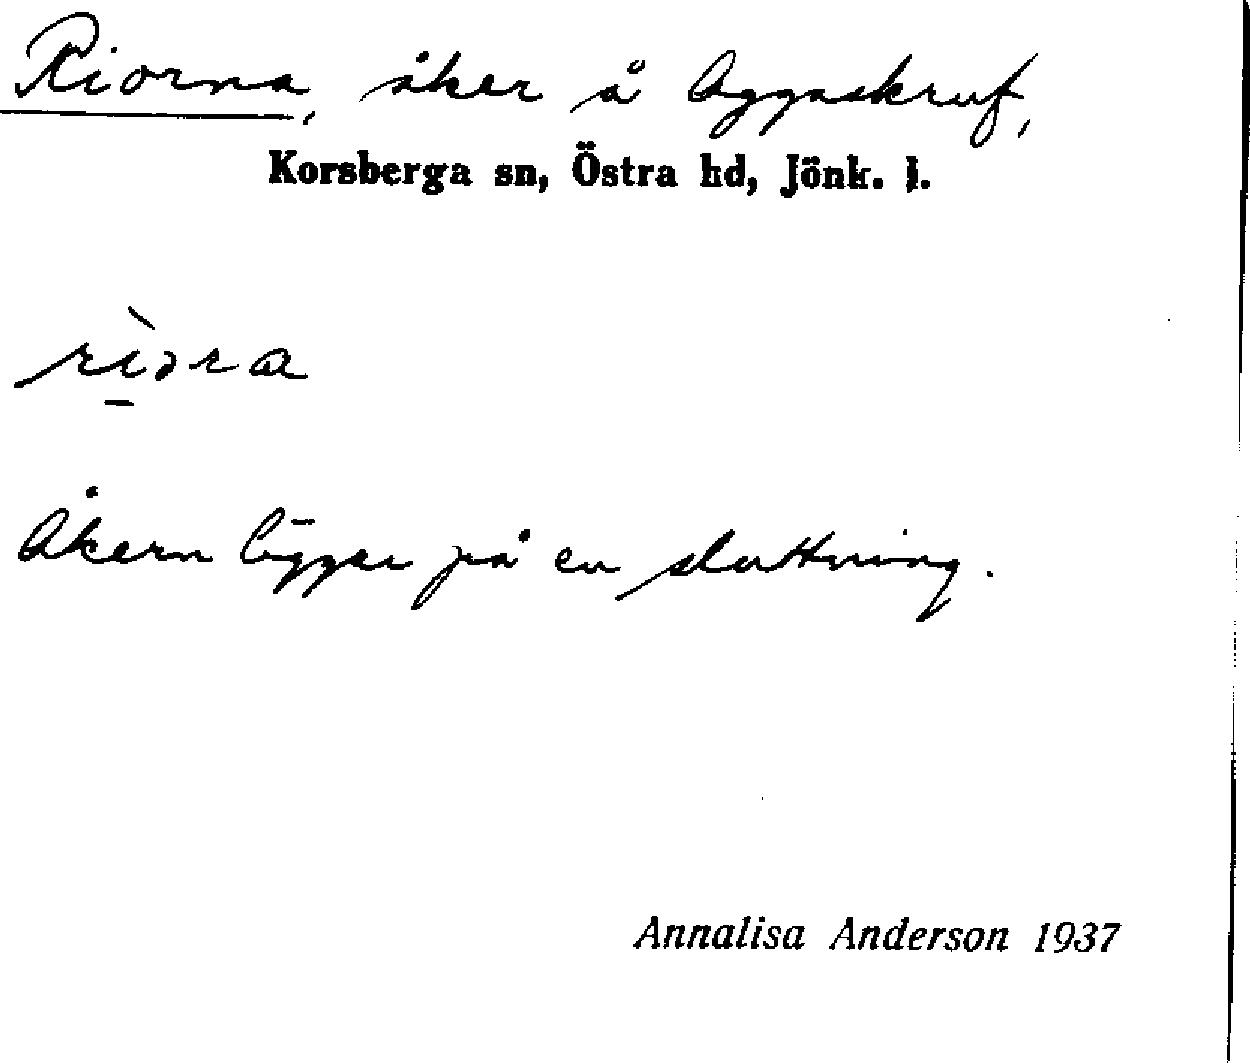 Riorna, åker å Aggaskruf,
Korsberga sn, Östra hd, Jönk. l.
rìɔra
Åkern ligger på en sluttning.
Annalisa Anderson 1937